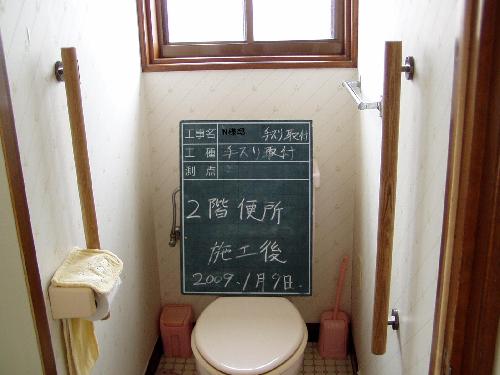 工事名 N様邸 手スリ取付
工種 手スリ取付
測点
2階便所
施工後
2009.1月9日.